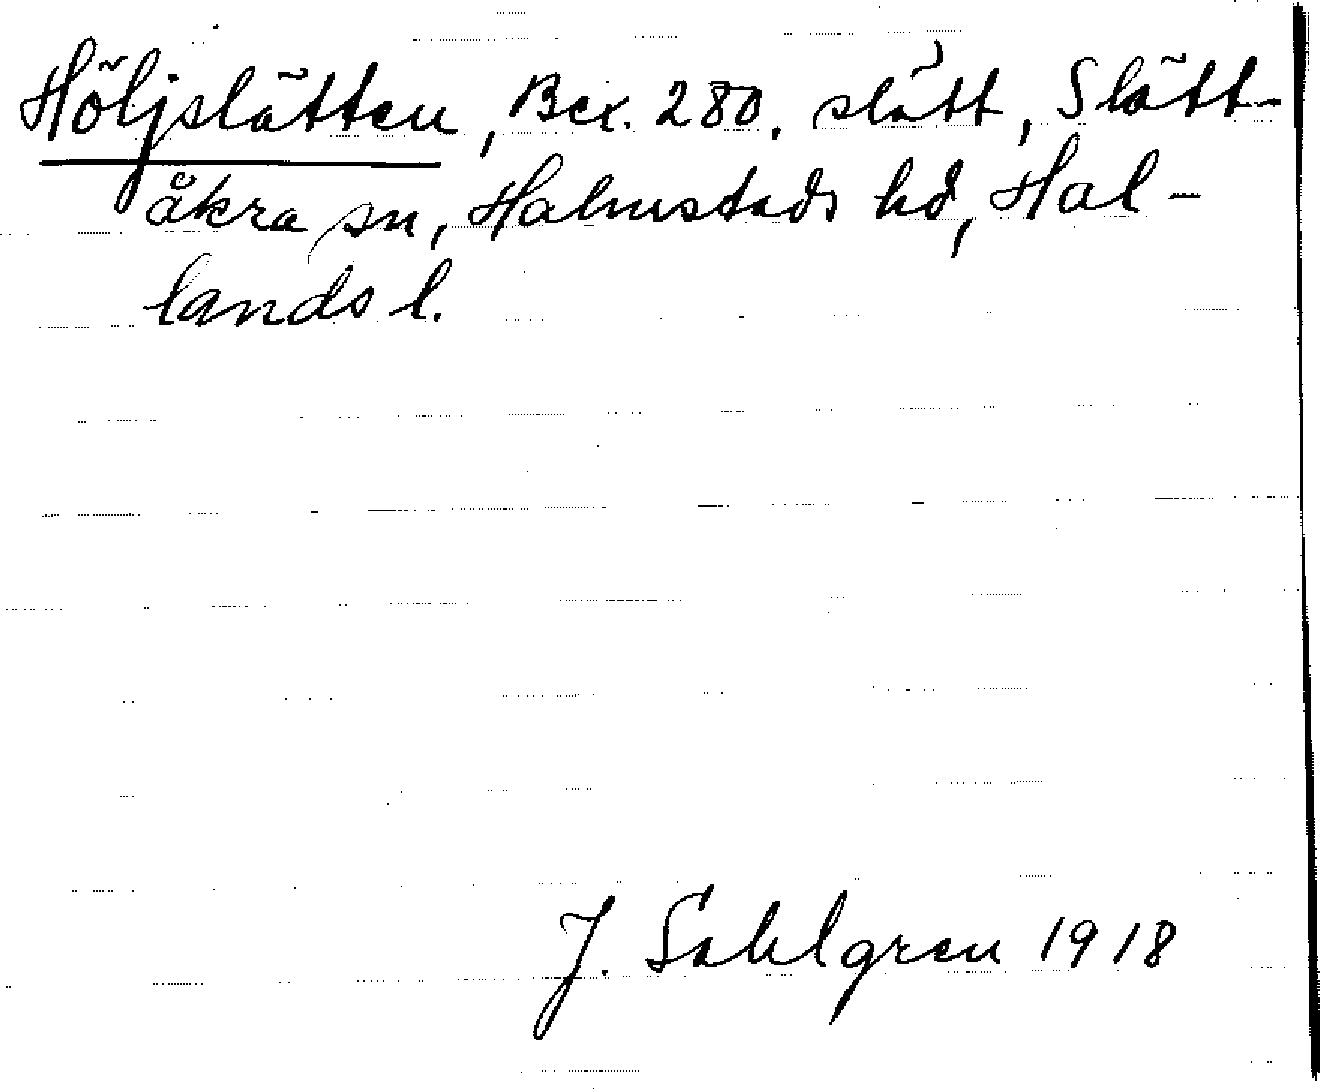 Höljslätten, Bex. 280. slätt, Slätt-
åkra sn, Halmstads hd, Hal-
lands l.
J. Sahlgren 1918